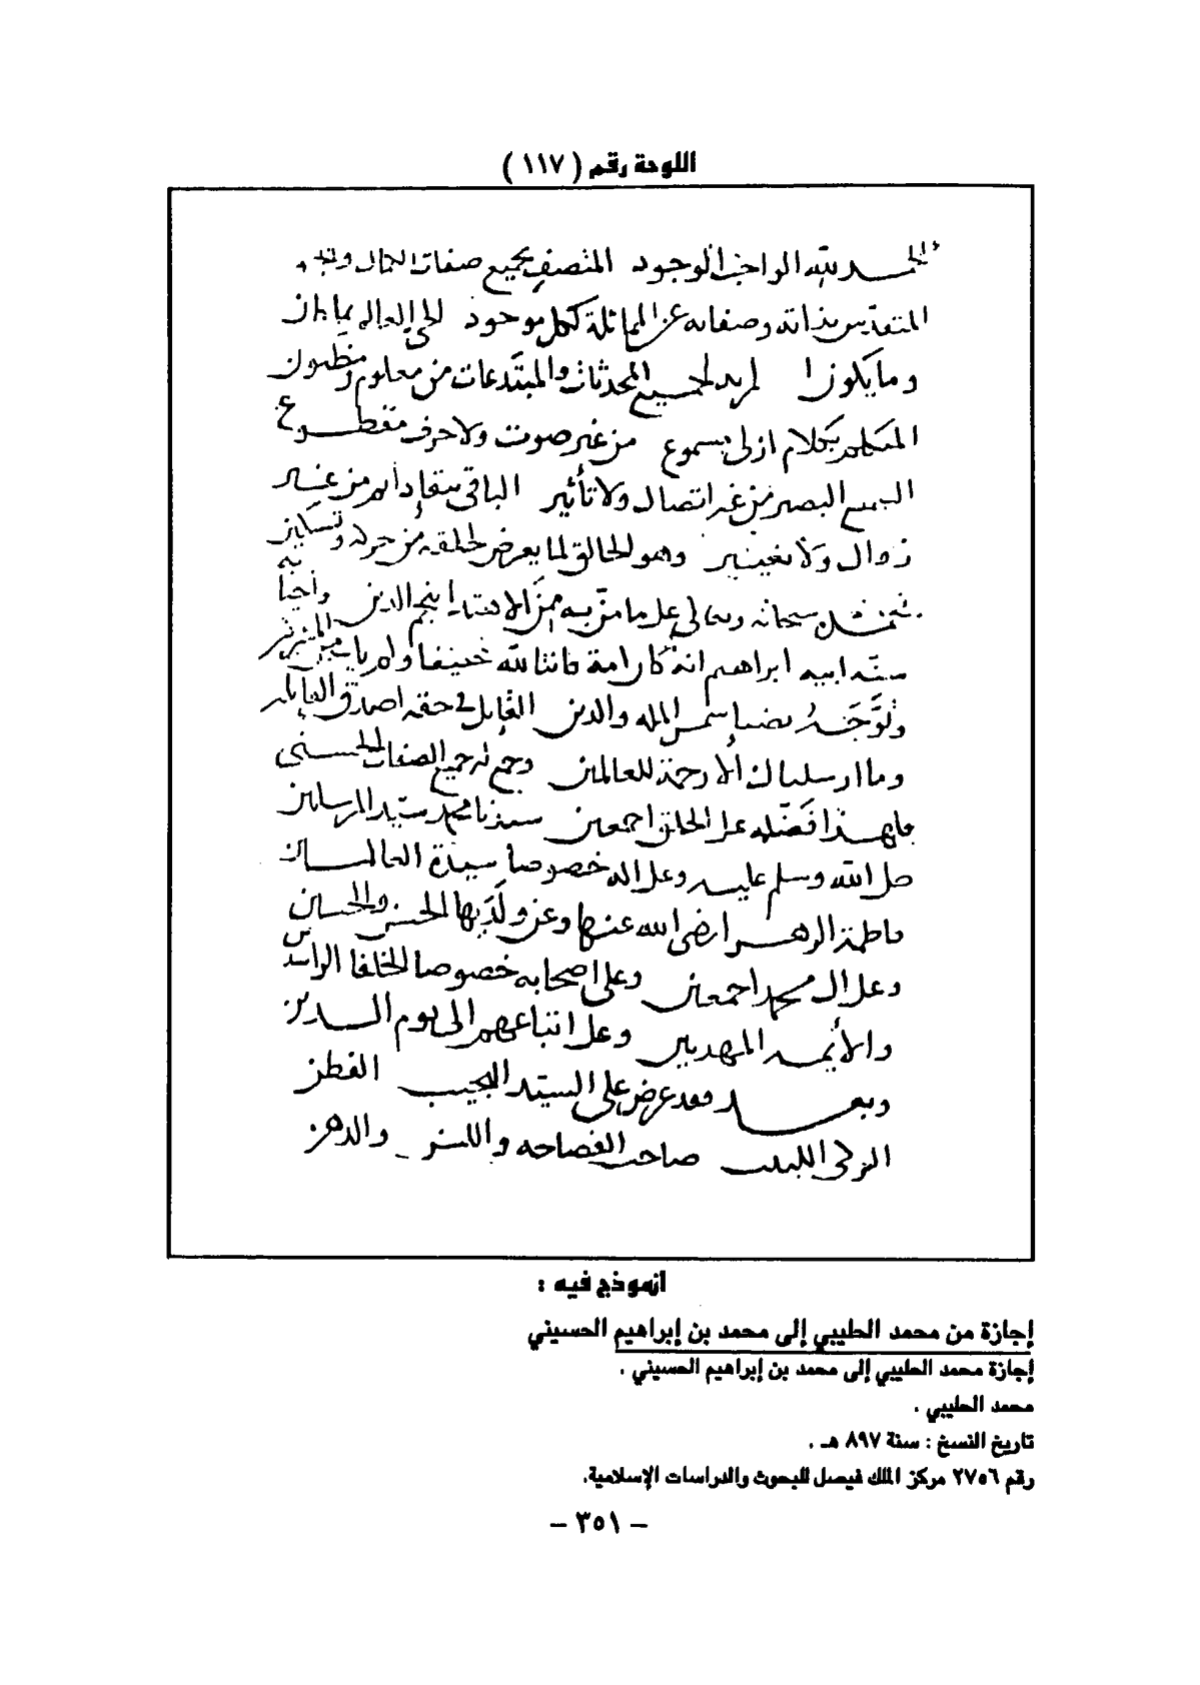 اللوحة رقم ( ١١٧ )
الحمد لله الواجب الوجود المتصف بجميع صفات الكمال
المتقدس بذاته وصفاته عن المماثلة لكل موجود الحي العالم بما كان
وما يكون المريد لجميع المحدثات والمبتدعات من معلوم ومظنون
المتكلم بكلام ازلي مسموع من غير صوت ولا حرف مقطوع
السميع البصير من غير اتصال ولا تأثير الباقي ببقاء دايم من غير
زوال ولا تغيير وهو الخالق لما يعرض لخلقه من حركة وتسكين
سبحانه وتعالى على ما من به من الاهتداء بنجم الدين واحيا به
سنة ابيه ابراهيم انه كان امة قانتا لله حنيفا ولم يك من المشركين
شمس المله والدين القايل في حقه اصدق القايلين
وما ارسلناك الا رحمة للعالمين وجمع له جميع الصفات الحسنى
فبهذا فضله على الخلق اجمعين سيدنا محمد سيد المرسلين
صلى الله وسلم عليه وعلى اله خصوصا سيدة العالمين
فاطمة الزهرا رضي الله عنها وعن ولديها الحسن والحسين
وعلى ال محمد اجمعين وعلى اصحابه خصوصا الخلفا الراشدين
والأيمه المهديين وعلى اتباعهم الى يوم الدين
وبعد فقد عرض علي السيد النجيب الفطن
الزكي اللبيب صاحب الفصاحه واللسن والذهن
انموذج فيه :
إجازة من محمد الطيبي إلى محمد بن إبراهيم الحسيني
إجازة محمد الطيبي إلى محمد بن إبراهيم الحسيني .
محمد الطيبي .
تاريخ النسخ : سنة ٨٩٧ هـ .
رقم ٢٧٥٦ مركز الملك فيصل للبحوث والدراسات الإسلامية.
– ٣٥١ –